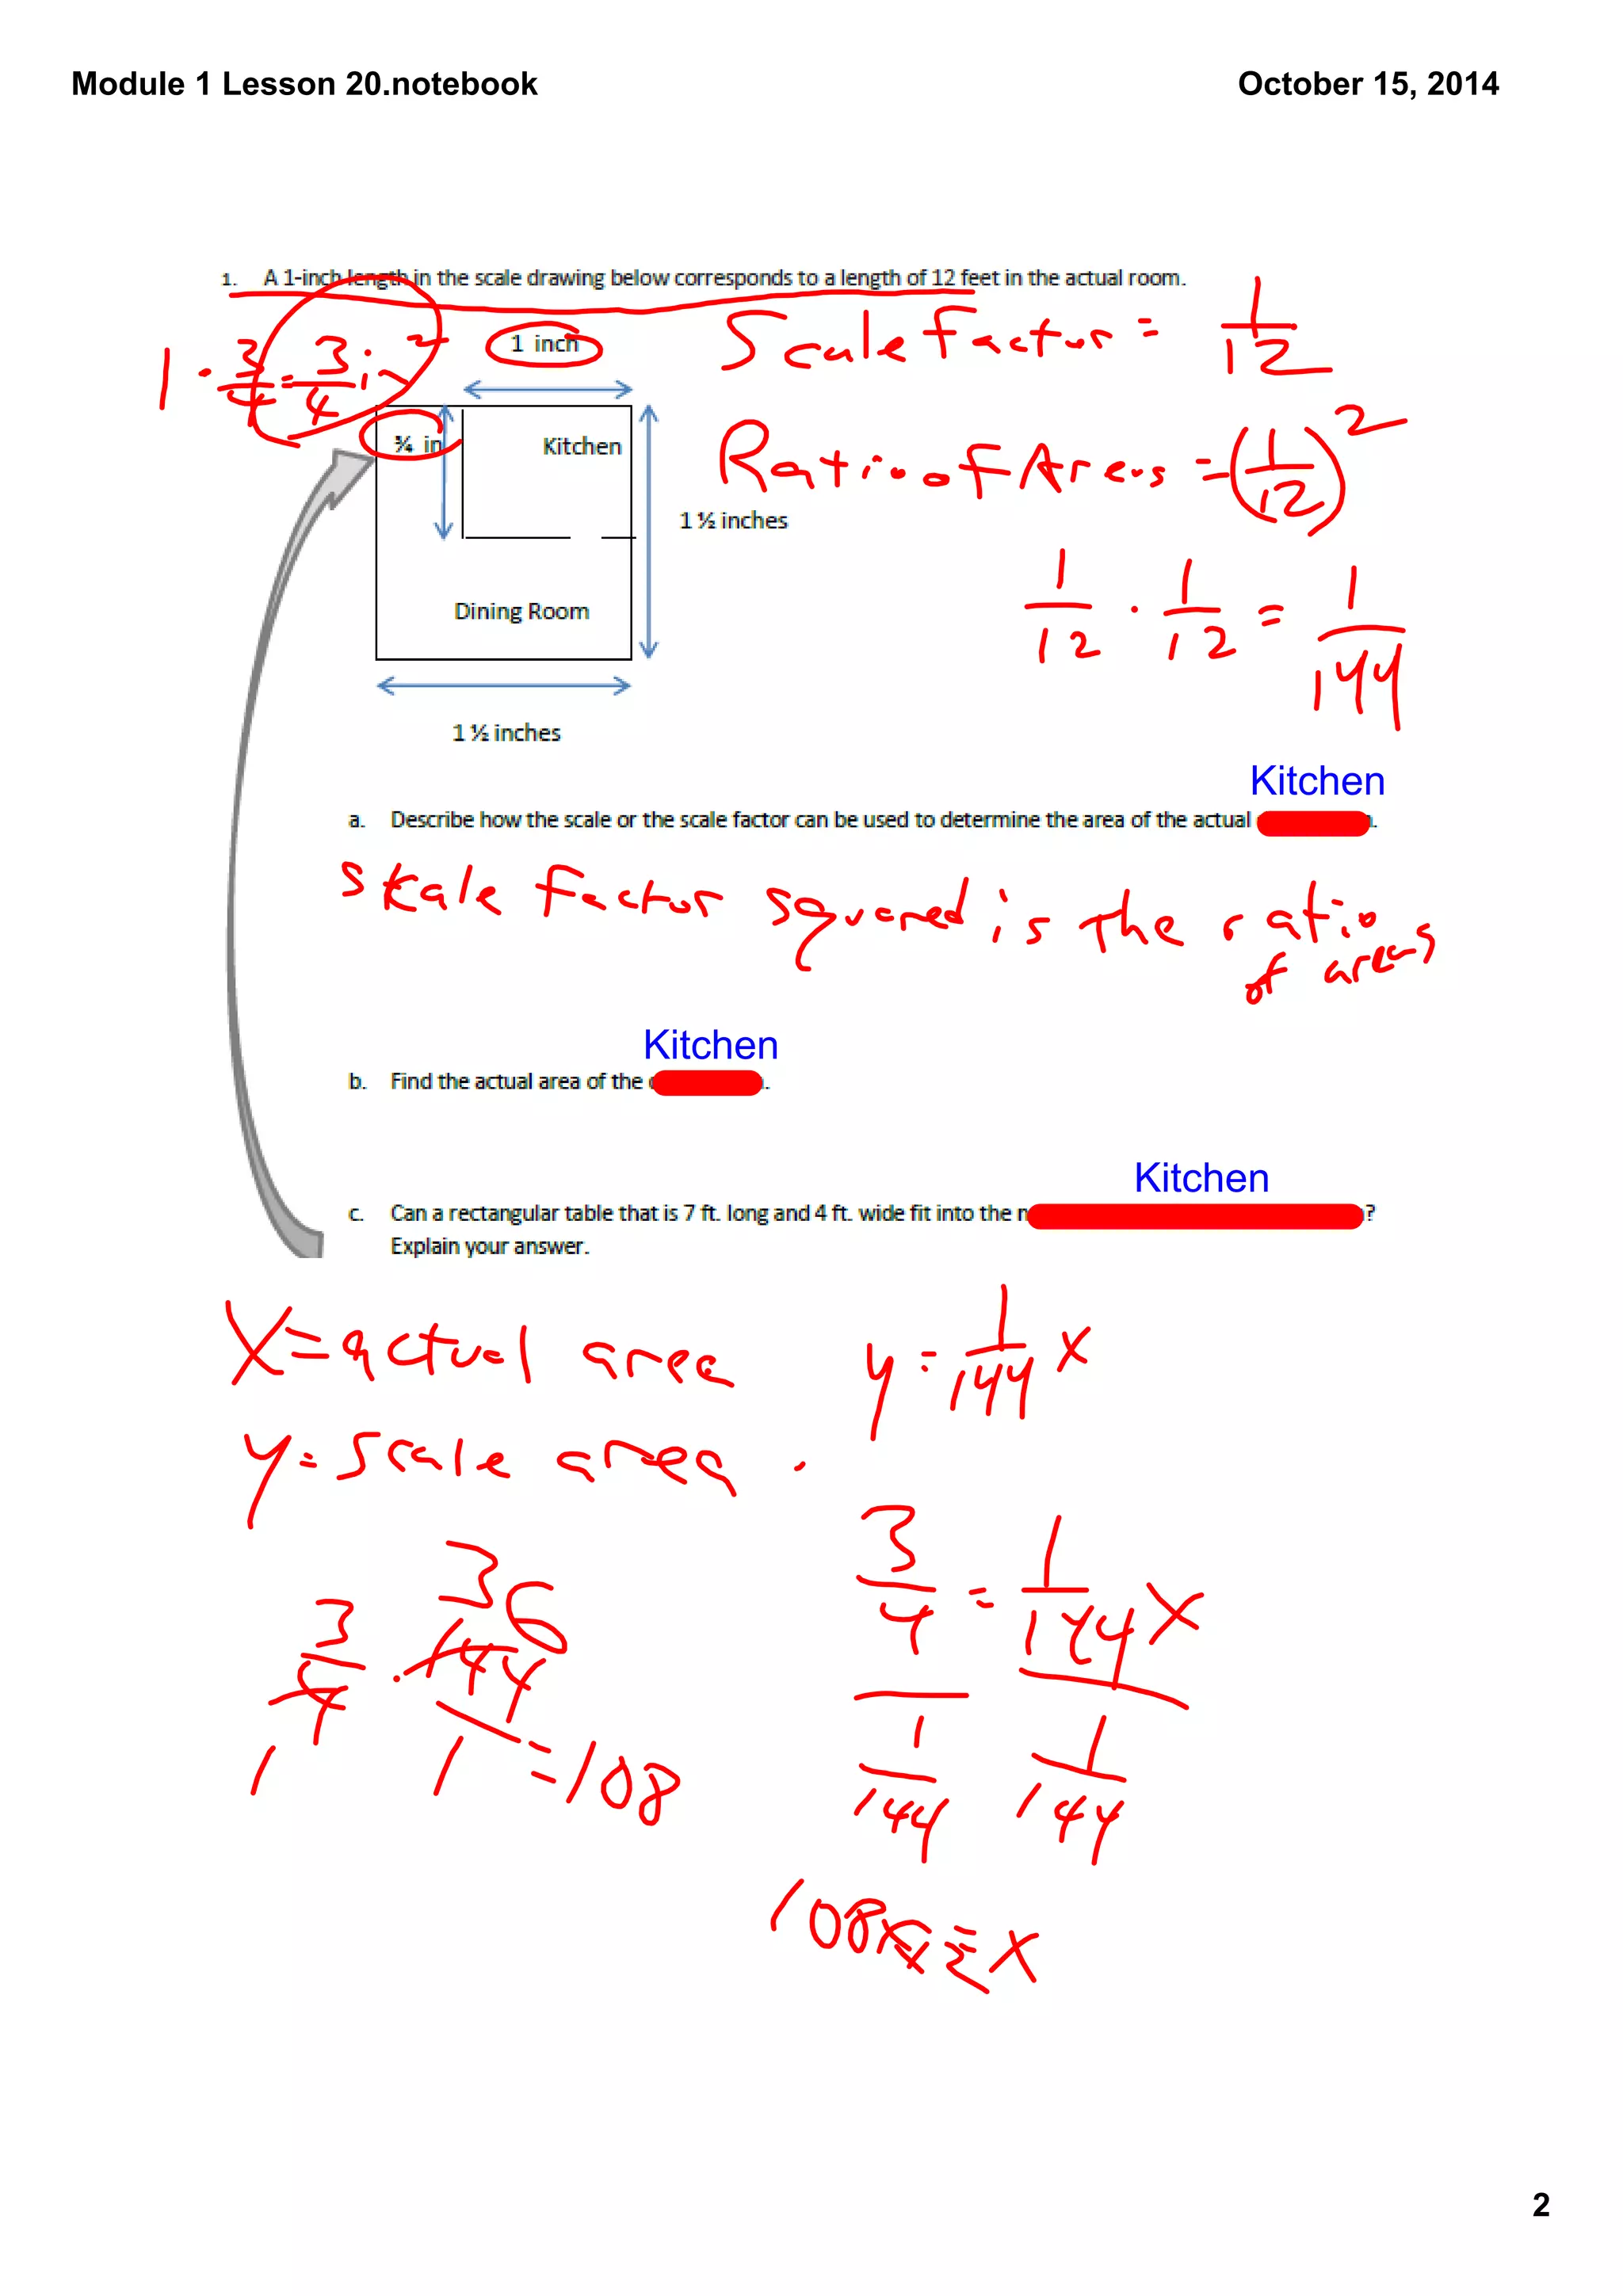 Module 1 Lesson 20.notebook
October 15, 2014
1. A 1-inch length in the scale drawing below corresponds to a length of 12 feet in the actual room.
1 · 3/4 = 3/4 in 2
1 inch
Scale Factor = 1/12
¾ in
Kitchen
Ratio of Areas = (1/12)2
1 ½ inches
1/12 · 1/12 = 1/144
Dining Room
1 ½ inches
Kitchen
a. Describe how the scale or the scale factor can be used to determine the area of the actual
Skale factor squared is the ratio
of areas
Kitchen
b. Find the actual area of the
Kitchen
c. Can a rectangular table that is 7 ft. long and 4 ft. wide fit into the ?
Explain your answer.
X = actual area
y = 1/144 x
y = Scale area .
3/4 = 1/144 x
1/144 1/144
36
3/4 · 144/1 = 108
1
108 = x
2